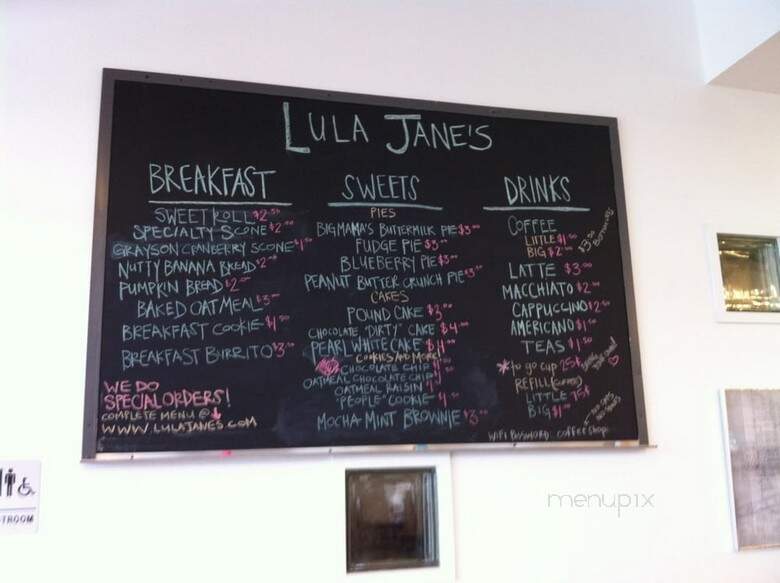 LULA JANE'S
BREAKFAST
SWEET ROLL $2.50
SPECIALTY SCONE $2
GRAYSON CRANBERRY SCONE $1
NUTTY BANANA BREAD $2
PUMPKIN BREAD $2
BAKED OATMEAL $3
BREAKFAST COOKIE $1
BREAKFAST BURRITO $3
WE DO
SPECIAL ORDERS!
COMPLETE MENU @
WWW.LULAJANES.COM
SWEETS
PIES
BIG MAMA'S BUTTERMILK PIE $3
FUDGE PIE $3
BLUEBERRY PIE $3
PEANUT BUTTER CRUNCH PIE $3
CAKES
POUND CAKE $3
CHOCOLATE "DIRTY" CAKE $4
PEARL WHITE CAKE $4
COOKIES AND MORE!
CHOCOLATE CHIP $1
OATMEAL CHOCOLATE CHIP
OATMEAL RAISIN
"PEOPLE" COOKIE $1
MOCHA MINT BROWNIE $3
DRINKS
COFFEE
LITTLE $1
BIG $2
LATTE $3
MACCHIATO $2
CAPPUCCINO $2
AMERICANO $1
TEAS $1
*to go cup 25¢
REFILL (coffee)
LITTLE 75¢
BIG $1
WIFI PASSWORD: coffeeshop
TROOM
menupix